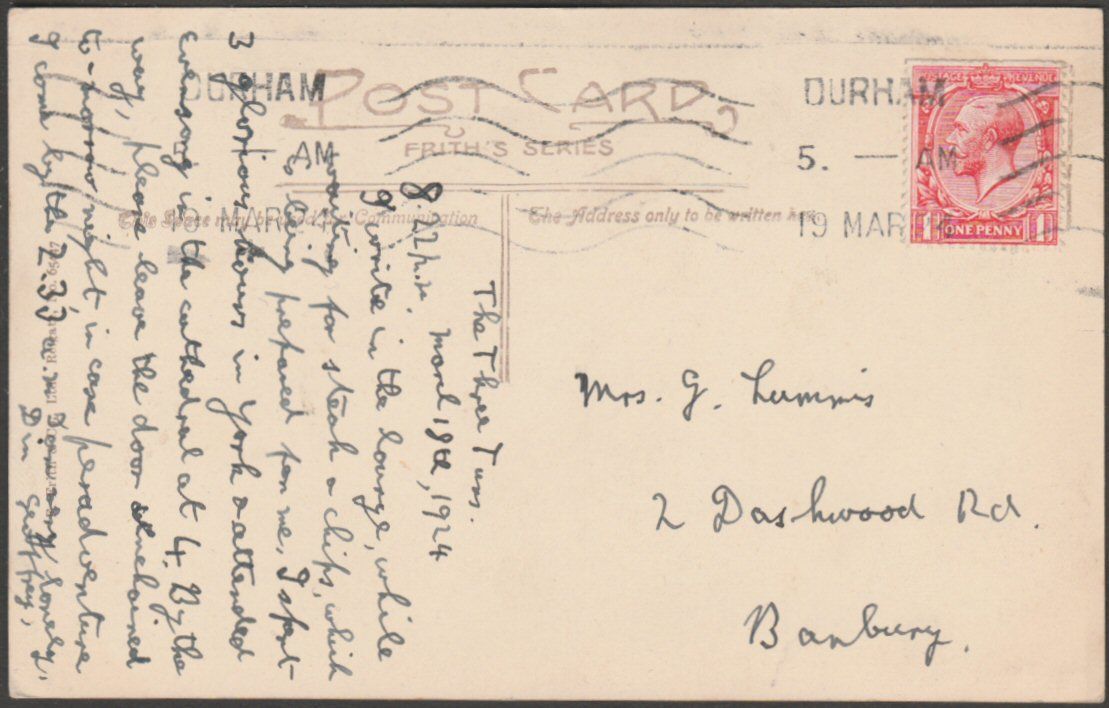 POST CARD
FRITH'S SERIES
This Space may be used for Communication
The Address only to be written here
DURHAM
AM
19 MAR 24
DURHAM
5. — AM
19 MAR
POSTAGE REVENUE
1 ONE PENNY 1
The Three Tuns.
March 18th, 1924
8.22 p.m.
I write in the lounge, while
waiting for steak & chips, which
is being prepared for me. I spent
3 glorious hours in York & attended
evensong in the cathedral at 4. By the
way, please leave the door unchained
to-morrow night in case peradventure
I come by the 2.33 a.m.
lonely,
Geoffrey.
Mrs. G. Lummis
2 Dashwood Rd.
Banbury.